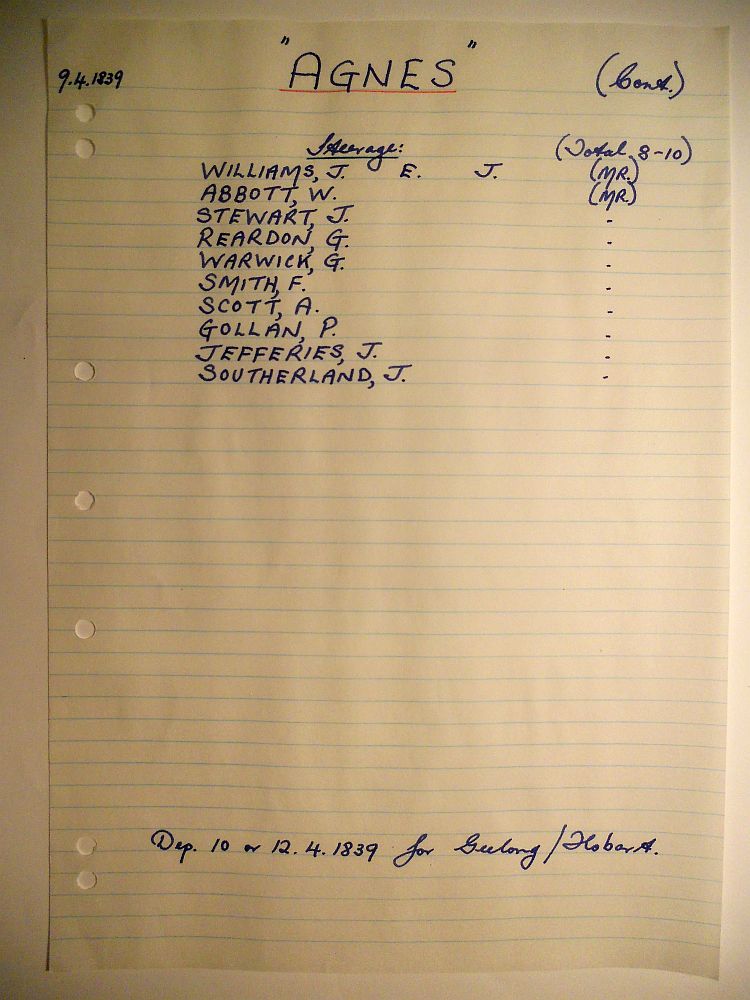 9.4.1839 "AGNES" (Cont.)
Steerage: (Total 8-10)
WILLIAMS, J. E. J. (MR.)
ABBOTT, W. (MR.)
STEWART, J. -
REARDON, G. -
WARWICK, G. -
SMITH, F. -
SCOTT, A. -
GOLLAN, P. -
JEFFERIES, J. -
SOUTHERLAND, J. -
Dep. 10 or 12.4.1839 for Geelong/Hobart.